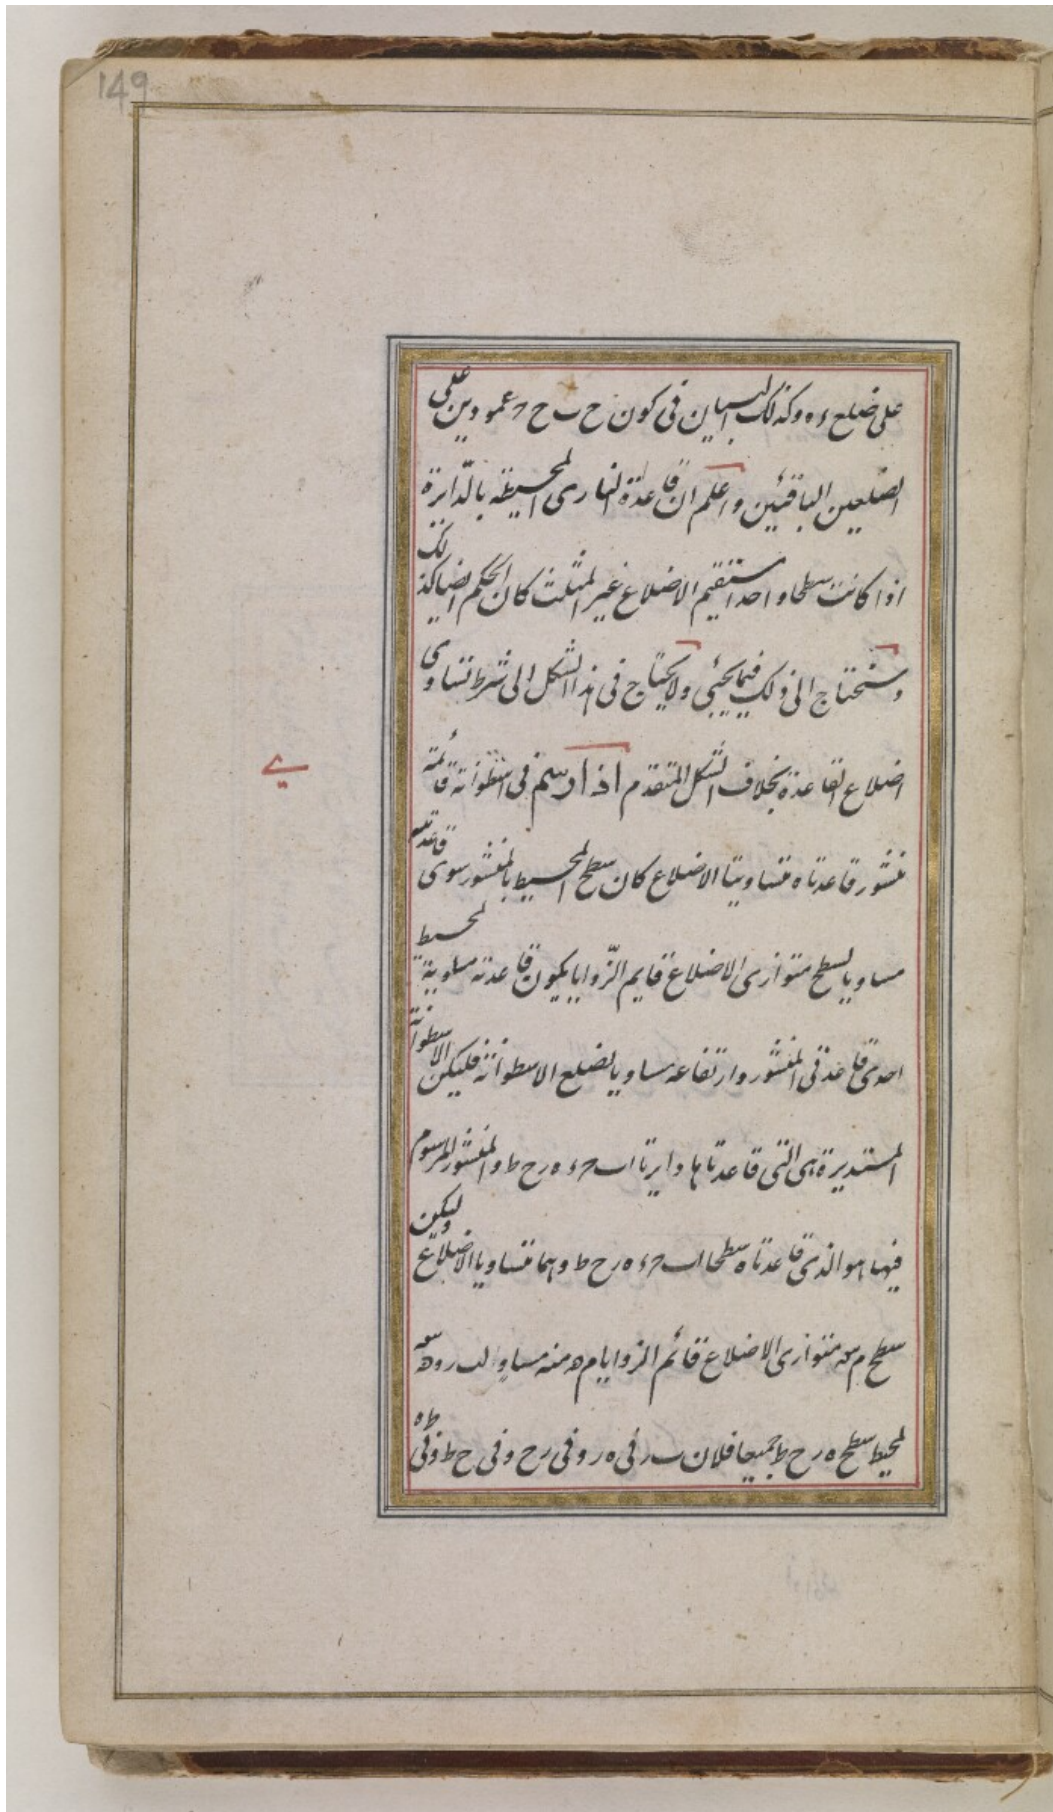 149
على ضلع ء ه وكذلك البيان فى كون ح ب ح حـ عمودين على
الضلعين الباقئين واعلم ان قاعدة النارى المحيطة بالدّايرة
اذا كانت سطحا واحدا مستقيم الاضلاع غير المثلث كان الحكم ايضا كذلك
وسنحتاج الى ذلك فيما يجيئ ولا يحتاج فى هذا الشكل الى شرط تساوى
اضلاع القاعدة بخلاف الشكل المتقدم اذا رسم فى اسطوانة قائمة
منشور قاعدتاه متساويتا الاضلاع كان سطح المحيط بالمنشور سوى قاعدتيه
مساويا لسطح متوازى الاضلاع قايم الزّوايا يكون قاعدته مساوية لمحيط
احدى قاعدتى المنشور وارتفاعه مساويا لضلع الاسطوانة فليكن الاسطوانة
المستديرة هى التى قاعدتاها دايرتا اب حـ ء ه ر ح ط والمنشور المرسوم
فيها هو الذى قاعدتاه سطحا اب حـ ء ه ر ح ط وهما متساويا الاضلاع وليكن
سطح م سه متوازى الاضلاع قائم الزوايا م هـ منه مساوٍ لب ر و هـ سه
لمحيط سطح ه ر ح ط جميعا فلان ب ر فى ه ر وفى ر ح وفى ح ط وفى ط ه
ي